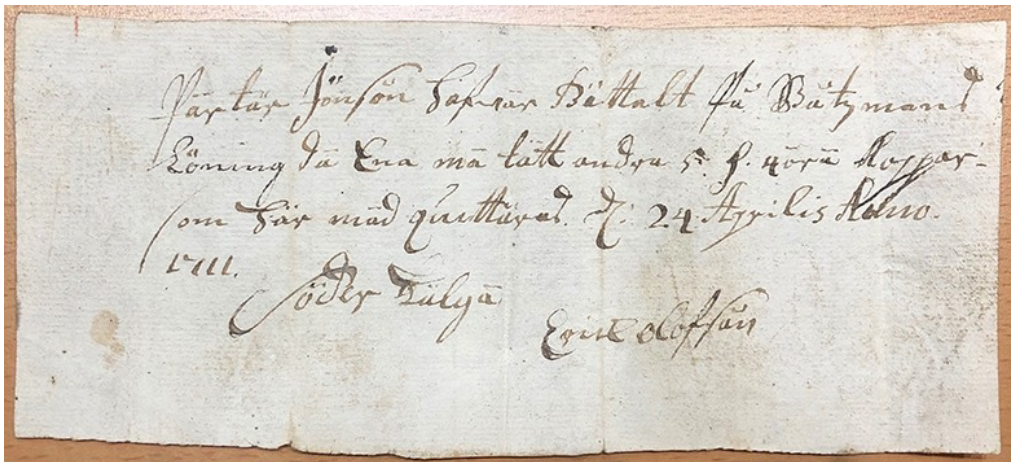 Pär tär Jönsön hafwär Bättalt På Båtzmans
Löning dä Ena mä tätt andra 5 f. 4 örä Koppar-
som här mäd quittäras. D: 24 Aprilis Anno.
1711.
Söder Tälgä
Erick olofsån